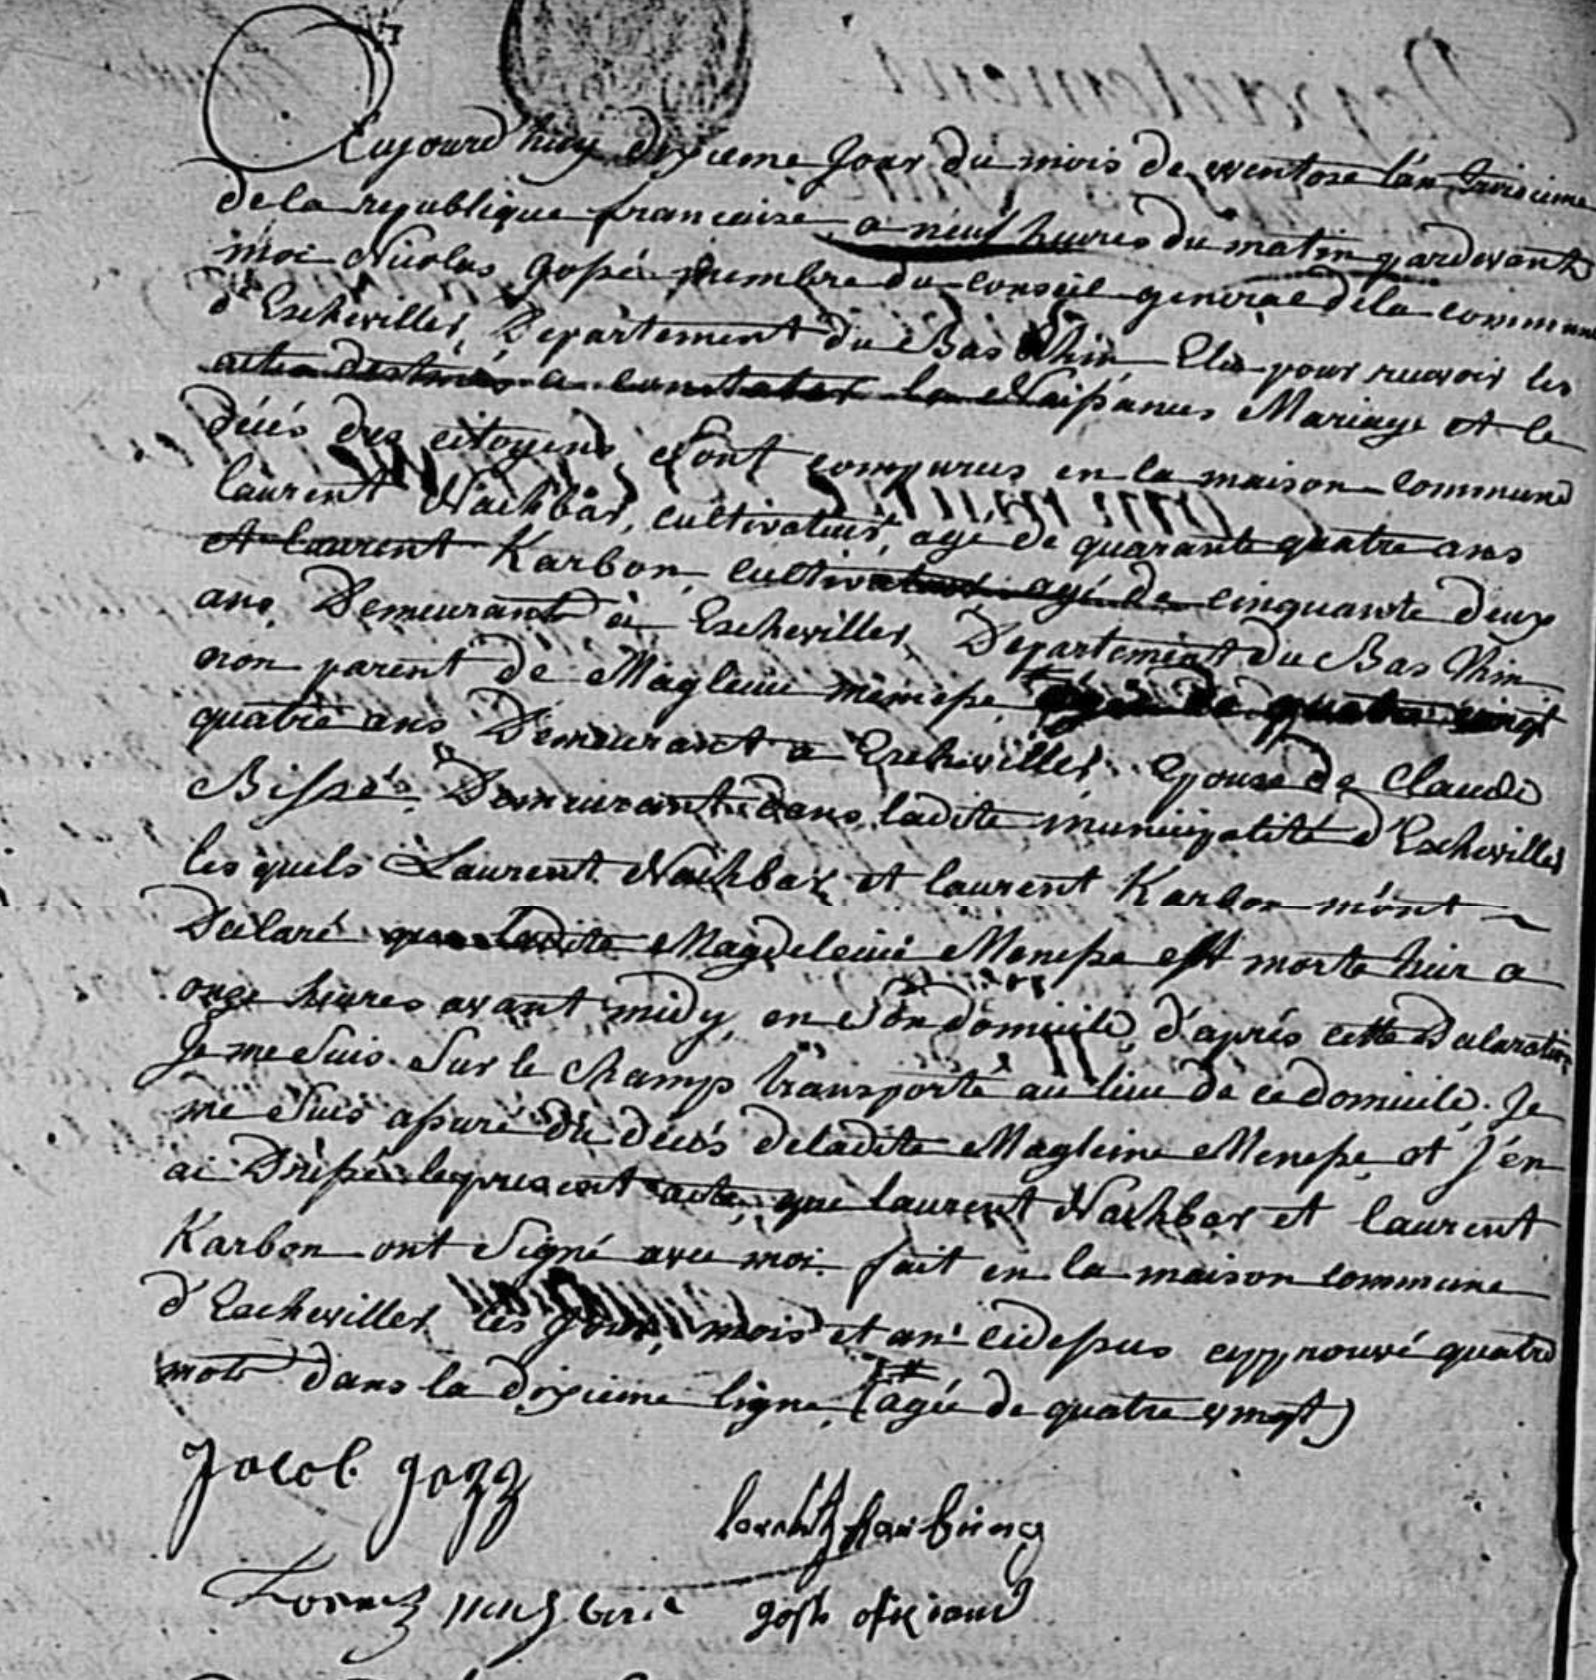 Aujourd'huy dixieme Jour du mois de ventose l'an troisieme
de la republique francaise a neuf heures du matin pardevant
moi Nicolas Gossé membre du conseil general de la commune
d'Eschviller, Departement du Bas Rhin Elu pour recevoir les
actes destinés a constater la Naissances Mariage et le
décés des citoyens, Sont comparus en la maison commune
laurent Nachbar, cultivateur, agé de quarante quatre ans
et laurent Karbon, cultivateur, agé de cinquante deux
ans, Demeurant à Escheviller Departement du Bas Rhin
non parent de Magleine menesse, agée de quatre vingt
quatre ans Demeurant a Escheviller, Epouse de Claude
Demeurant dans ladite municipalité d'Escheviller
les quels Laurent Nachbar et laurent Karbon m'ont
Déclaré que ladite Magdeleine Menesse est morte hier a
onze heures avant midy, en Son domicile, d'aprés cette Declaration
Je me Suis Sur le champ transporté au lieu de ce domicile. Je
me Suis assuré du decés de ladite Magleine Menesse et J'en
ai Dressé le present acte, que laurent Nachbar et laurent
Karbon ont Signé avec moi. fait en la maison commune
d'Escheviller les jour, mois et an cidessus approuvé quatre
mots dans la dixieme ligne, (agée de quatre vingt)
Jacob gozz